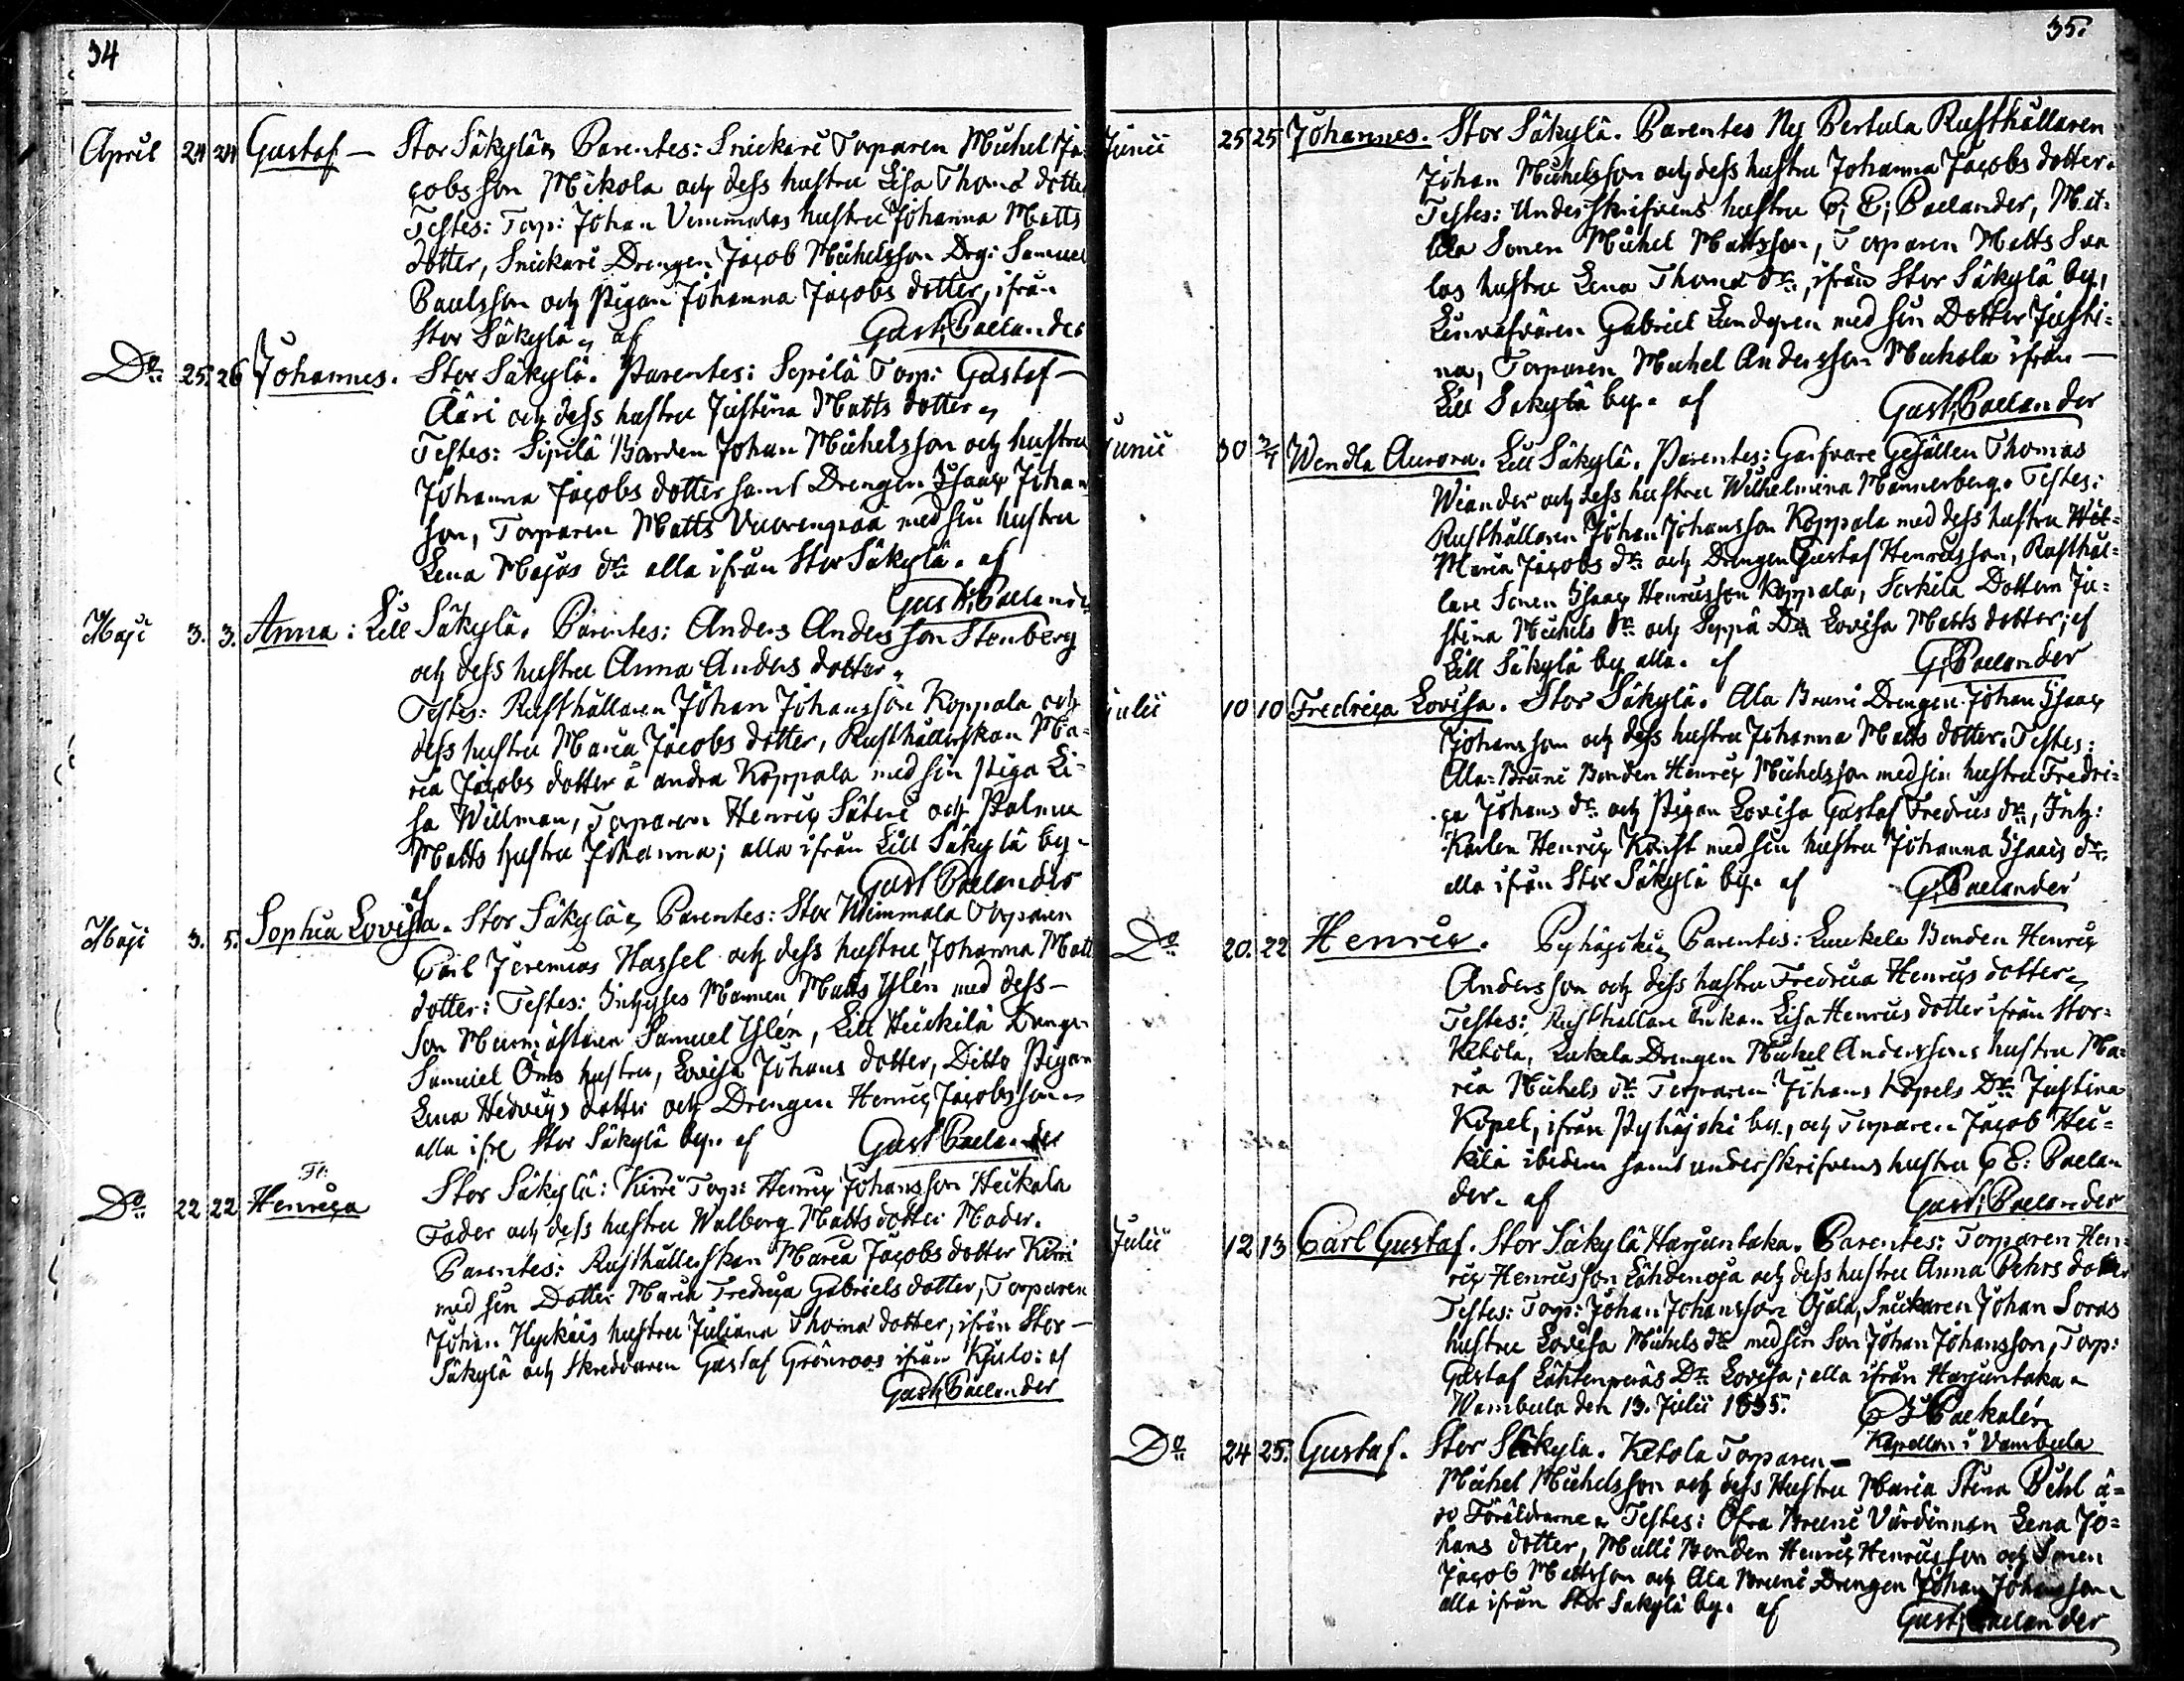 34
April 24 24 Gustaf — Stor Säkylä, Parentes: Snickari Torparen Michel Ja-
cobsson Mikola och dess hustru Lisa Thomæ dotter
Testes: Torp: Johan Vimmalas hustru Johanna Matts
dotter, Snickari Drengen Jacob Michelsson Drg: Samuel
Paulsson och Pigan Johanna Jacobs dotter, ifrån
Stor Säkylä, af Gust: Paelander
Do 25. 26 Johannes. Stor Säkylä. Parentes: Sipilä Torp: Gustaf —
Ääri och dess hustru Justina Matts dotter,
Testes: Sipilä Bonden Johan Michelsson och hustru
Johanna Jacobs dotter samt Drengen Isaac Johan
son, Torparen Matts Vuorenpää med sin hustru
Lena Majas dr alla ifrån Stor Säkylä. af
Gust: Paelander
Maji 3. 3. Anna: Lill Säkylä. Parentes: Anders Andersson Stenberg
och dess hustru Anna Anders dotter,
Testes: Rusthållaren Johan Johansson Koppala och
dess hustru Maria Jacobs dotter, Rusthållerskan Ma-
ria Jacobs dotter å andra Koppala med sin Piga Li-
sa Willman, Torparen Henric Säteri och Palmu
Matts hustru Johanna; alla ifrån Lill Säkylä by.
af Gust Paelander
Maji 3. 5. Sophia Lovisa. Stor Säkylä, Parentes: Stor Wimmala Torparen
Carl Jeremias Hassel och dess hustru Johanna Matts
dotter: Testes: Inhyses Mannen Matts Ylén med dess —
Son Murmästaren Samuel Ylén, Lill Heickilä Drengen
Samuel Öms hustru, Lovisa Johans dotter, Ditto Pigan
Lena Hedvigs dotter och Drengen Henric Jacobsson
alla ifrå Stor Säkylä by. af Gust Paelander
Fl:
Do 22 22 Henrica Stor Säkylä: Kirri Torp: Henric Johansson Heickala
Fader och dess hustru Walborg Matts dotter Moder.
Parentes: Rusthållerskan Maria Jacobs dotter Kirri
med sin Dotter Maria Fredrica Gabriels dotter, Torparen
Johan Hyckäis hustru Juliana Thomæ dotter, ifrån Stor —
Säkylä och Skreddaren Gustaf Grönroos ifrån Kjulo: af
Gust: Paelander
35.
Junii 25 25 Johannes. Stor Säkylä. Parentes Ny Pertula Rusthållaren
Johan Michelsson och dess hustru Johanna Jacobs dotter.
Testes: Underskrifvens hustru C; E; Paelander, Mat-
tila Sonen Michel Mattsson, Torparen Matts Sva
las hustru Lena Thomæ dr, ifrån Stor Säkylä by,
Linväfvaren Gabriel Lundgren med sin Dotter Justi-
na, Torparen Michel Andersson Mickola ifrån —
Lill Säkylä by. af Gust: Paelander
Junii 30 2/7 Wendla Aurora. Lill Säkylä. Parentes: Garfvare Gesällen Thomas
Wiander och dess hustru Wilhelmina Mannerberg. Testes:
Rusthållaren Johan Johansson Koppala med dess hustru
Maria Jacobs dr och Drengen Gustaf Henricsson, Rusthål-
lare Sonen Isaac Henricsson Koppala, Dottern Ju-
stina Michels dr och Seppä Do Lovisa Matts dotter; af
Lill Säkylä by alla. af G; Paelander
Julii 10 10 Fredrica Lovisa. Stor Säkylä. Ala Bruni Drengen Johan Isaac
Johansson och dess hustru Johanna Matts dotter. Testes:
Ala-Bruni Bonden Henric Michelsson med sin hustru Fredri-
ca Johans dr och Pigan Lovisa Gustaf Fredrics dr, Inh:
Karlen Henric Korist med sin hustru Johanna Isaacs dr
alla ifrån Stor Säkylä by. af G: Paelander
Do 20. 22 Henric. Pyhäjoki, Parentes: Luckela Bonden Henric
Andersson och dess hustru Fredrica Henrics dotter,
Testes: Rusthållare Enkan Lisa Henrics dotter ifrån Stor-
Ketola, Luckela Drengen Michel Anderssons hustru Ma-
ria Michels dr Torparen Johans Kopels Dr Justina
Kopel, ifrån Pyhäjoki by., och Torparen Jacob Hei-
kilä ibidem samt underskrifvens hustru C E: Paelan
der. af Gust: Paelander
Julii 12 13 Carl Gustaf. Stor Säkylä Harjuntaka. Parentes: Torparen Hen-
ric Henricsson Lähdenoja och dess hustru Anna Pehrs dotter
Testes: Torp: Johan Johansson Ojala, Snickaren Johan Soras
hustru Lovisa Michels dr med sin Son Johan Johansson, Torp:
Gustaf Lähtenpääs Dr Lovisa; alla ifrån Harjuntaka.
Wambula den 13. Julii 1835.
Kapellan i Vambula
Do 24 25. Gustaf. Stor Säkylä. Ketola Torparen —
Michel Michelsson och dess Hustru Maria Stina Pehl ä-
ro Föräldrarne. Testes: Öfra Bruni Värdinnan Lena Jo-
hans dotter, Mulli Bonden Henric Henricsson och Sonen
Jacob Mattsson och Ala Bruni Drengen Johan Johansson
alla ifrån Stor Säkylä by. af Gust: Paelander